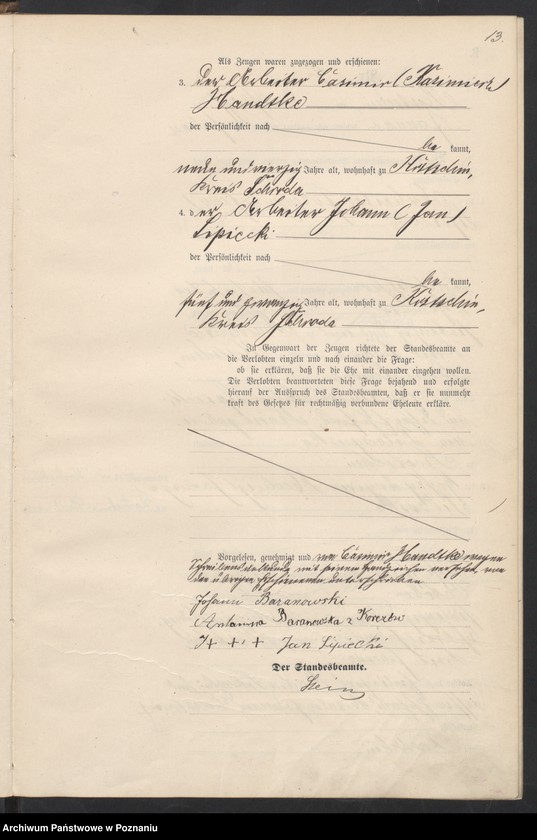 13.
Als Zeugen waren zugezogen und erschienen:
3. der Arbeiter Casimir (Kazimierz)
Handtke
der Persönlichkeit nach
be kannt,
neun und vierzig Jahre alt, wohnhaft zu Kostschin,
Kreis Schroda
4. der Arbeiter Johann (Jan)
Lipiecki
der Persönlichkeit nach
be kannt,
fünf und zwanzig Jahre alt, wohnhaft zu Kostschin,
Kreis Schroda
In Gegenwart der Zeugen richtete der Standesbeamte an
die Verlobten einzeln und nach einander die Frage:
ob sie erklären, daß sie die Ehe mit einander eingehen wollen.
Die Verlobten beantworteten diese Frage bejahend und erfolgte
hierauf der Ausspruch des Standesbeamten, daß er sie nunmehr
kraft des Gesetzes für rechtmäßig verbundene Eheleute erkläre.
Vorgelesen, genehmigt und von Casimir Handtke wegen
mit seinem Handzeichen versehen, von
den übrigen Erschienenen unterschrieben
Johann Baranowski
Baranowska z
+ + + Jan Lipiecki
Der Standesbeamte.
Archiwum Państwowe w Poznaniu